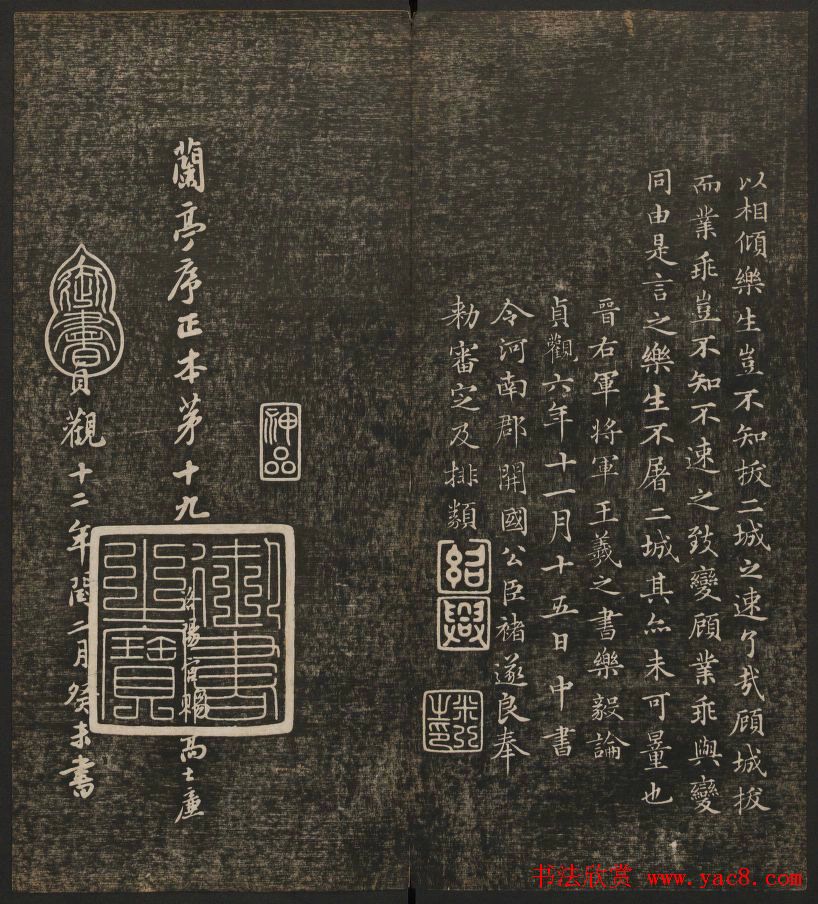 以相傾樂生豈不知拔二城之速了哉顧城拔
而業乖豈不知不速之致變顧業乖與變
同由是言之樂生不屠二城其亦未可量也
晉右軍將軍王羲之書樂毅論
貞觀六年十一月十五日中書
令河南郡開國公臣褚遂良奉
勑審定及排類
紹興
米芾
神品
蘭亭序正本第十九
洛陽宮賜高士廉
御書之寶
御書
貞觀十二年閏二月癸未書
书法欣赏 www.yac8.com